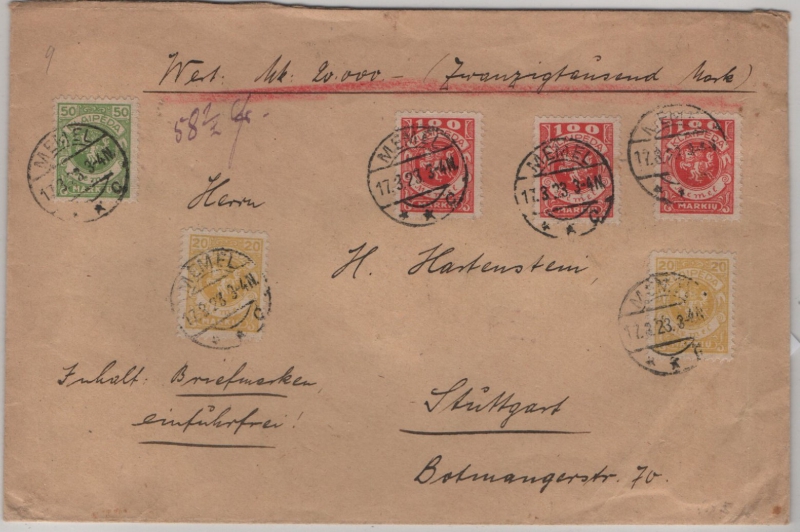 Wert: Mk. 20.000.— (Zwanzigtausend Mark)
58 1/2 g.
50 50
KLAIPEDA
MARKIŲ
MEMEL
17.3.23.3-4N
* * C
100
KLAIPEDA
MEMEL
MARKIŲ
MEMEL
17.3.23 3-4N
* * C
100
KLAIPEDA
MEMEL
MARKIŲ
MEMEL
17.3.23 3-4N
* * C
100
KLAIPEDA
MEMEL
MARKIŲ
MEMEL
Herrn
20 20
MEMEL
17.3.23 3-4N
* * C
H. Hartenstein,
20 20
17.3.23.3-4N
* *
Inhalt: Briefmarken,
einfuhrfrei!
Stuttgart
Botnangerstr. 70.